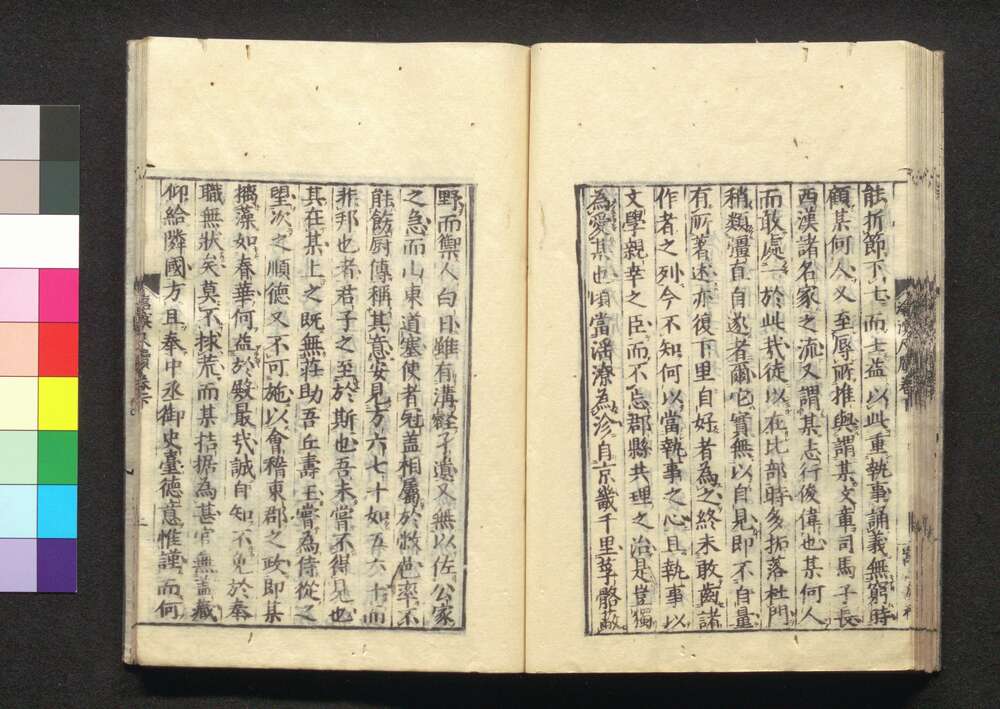 能折節下士而士益以此重執事誦義無窮時
顧某何人又至辱所推與謂某文章司馬子長
西漢諸名家之流又謂其志行俊偉也某何人
而敢處一於此哉徒以在比部時多拓落杜門
稍類彊直自遂者爾它實無以自見即不自量
有所著述亦復下里自好者為之終未敢齒諸
作者之列今不知何以當執事之心且執事以
文學親幸之臣而不忘郡縣共理之治是豈獨
為愛某也頃當潘潦為沴自京畿千里莩骼蔽
野而輿人白日雖有溝孑遺又無以佐公家
之急而山東道塞使者冠盖相屬於牧邑率不
能飭厨傳稱其意安見方六七十如五六十而
非邦也者君子之至於斯也吾未嘗不得見也
其在某上之既無莊助吾丘壽王嘗為侍從之
望次之順德又不可施以會稽東郡之政即某
摛藻如春華何益於殿最哉誠自知不免於奉
職無狀矣莫不捄荒而某拮据為甚官無盖藏
仰給隣國方且奉中丞御史臺德意惟謹而何